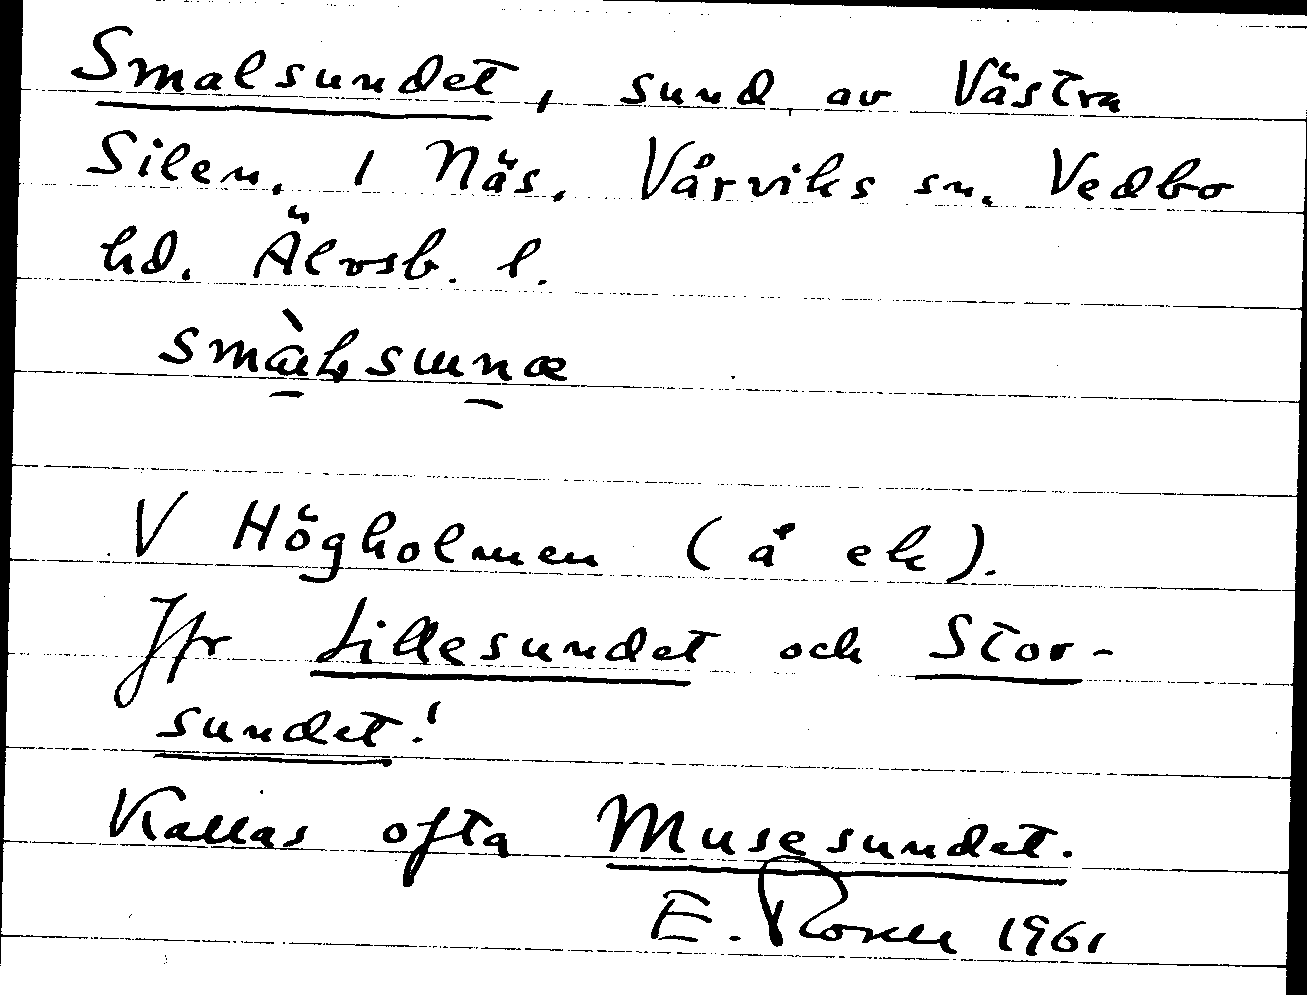 Smalsundet, sund av Västra
Silen. 1 Näs. Vårviks sn. Vedbo
hd. Älvsb. l.
V Högholmen (å ek).
Jfr Lillesundet och Stor-
sundet!
Kallas ofta Musesundet.
E. 1961